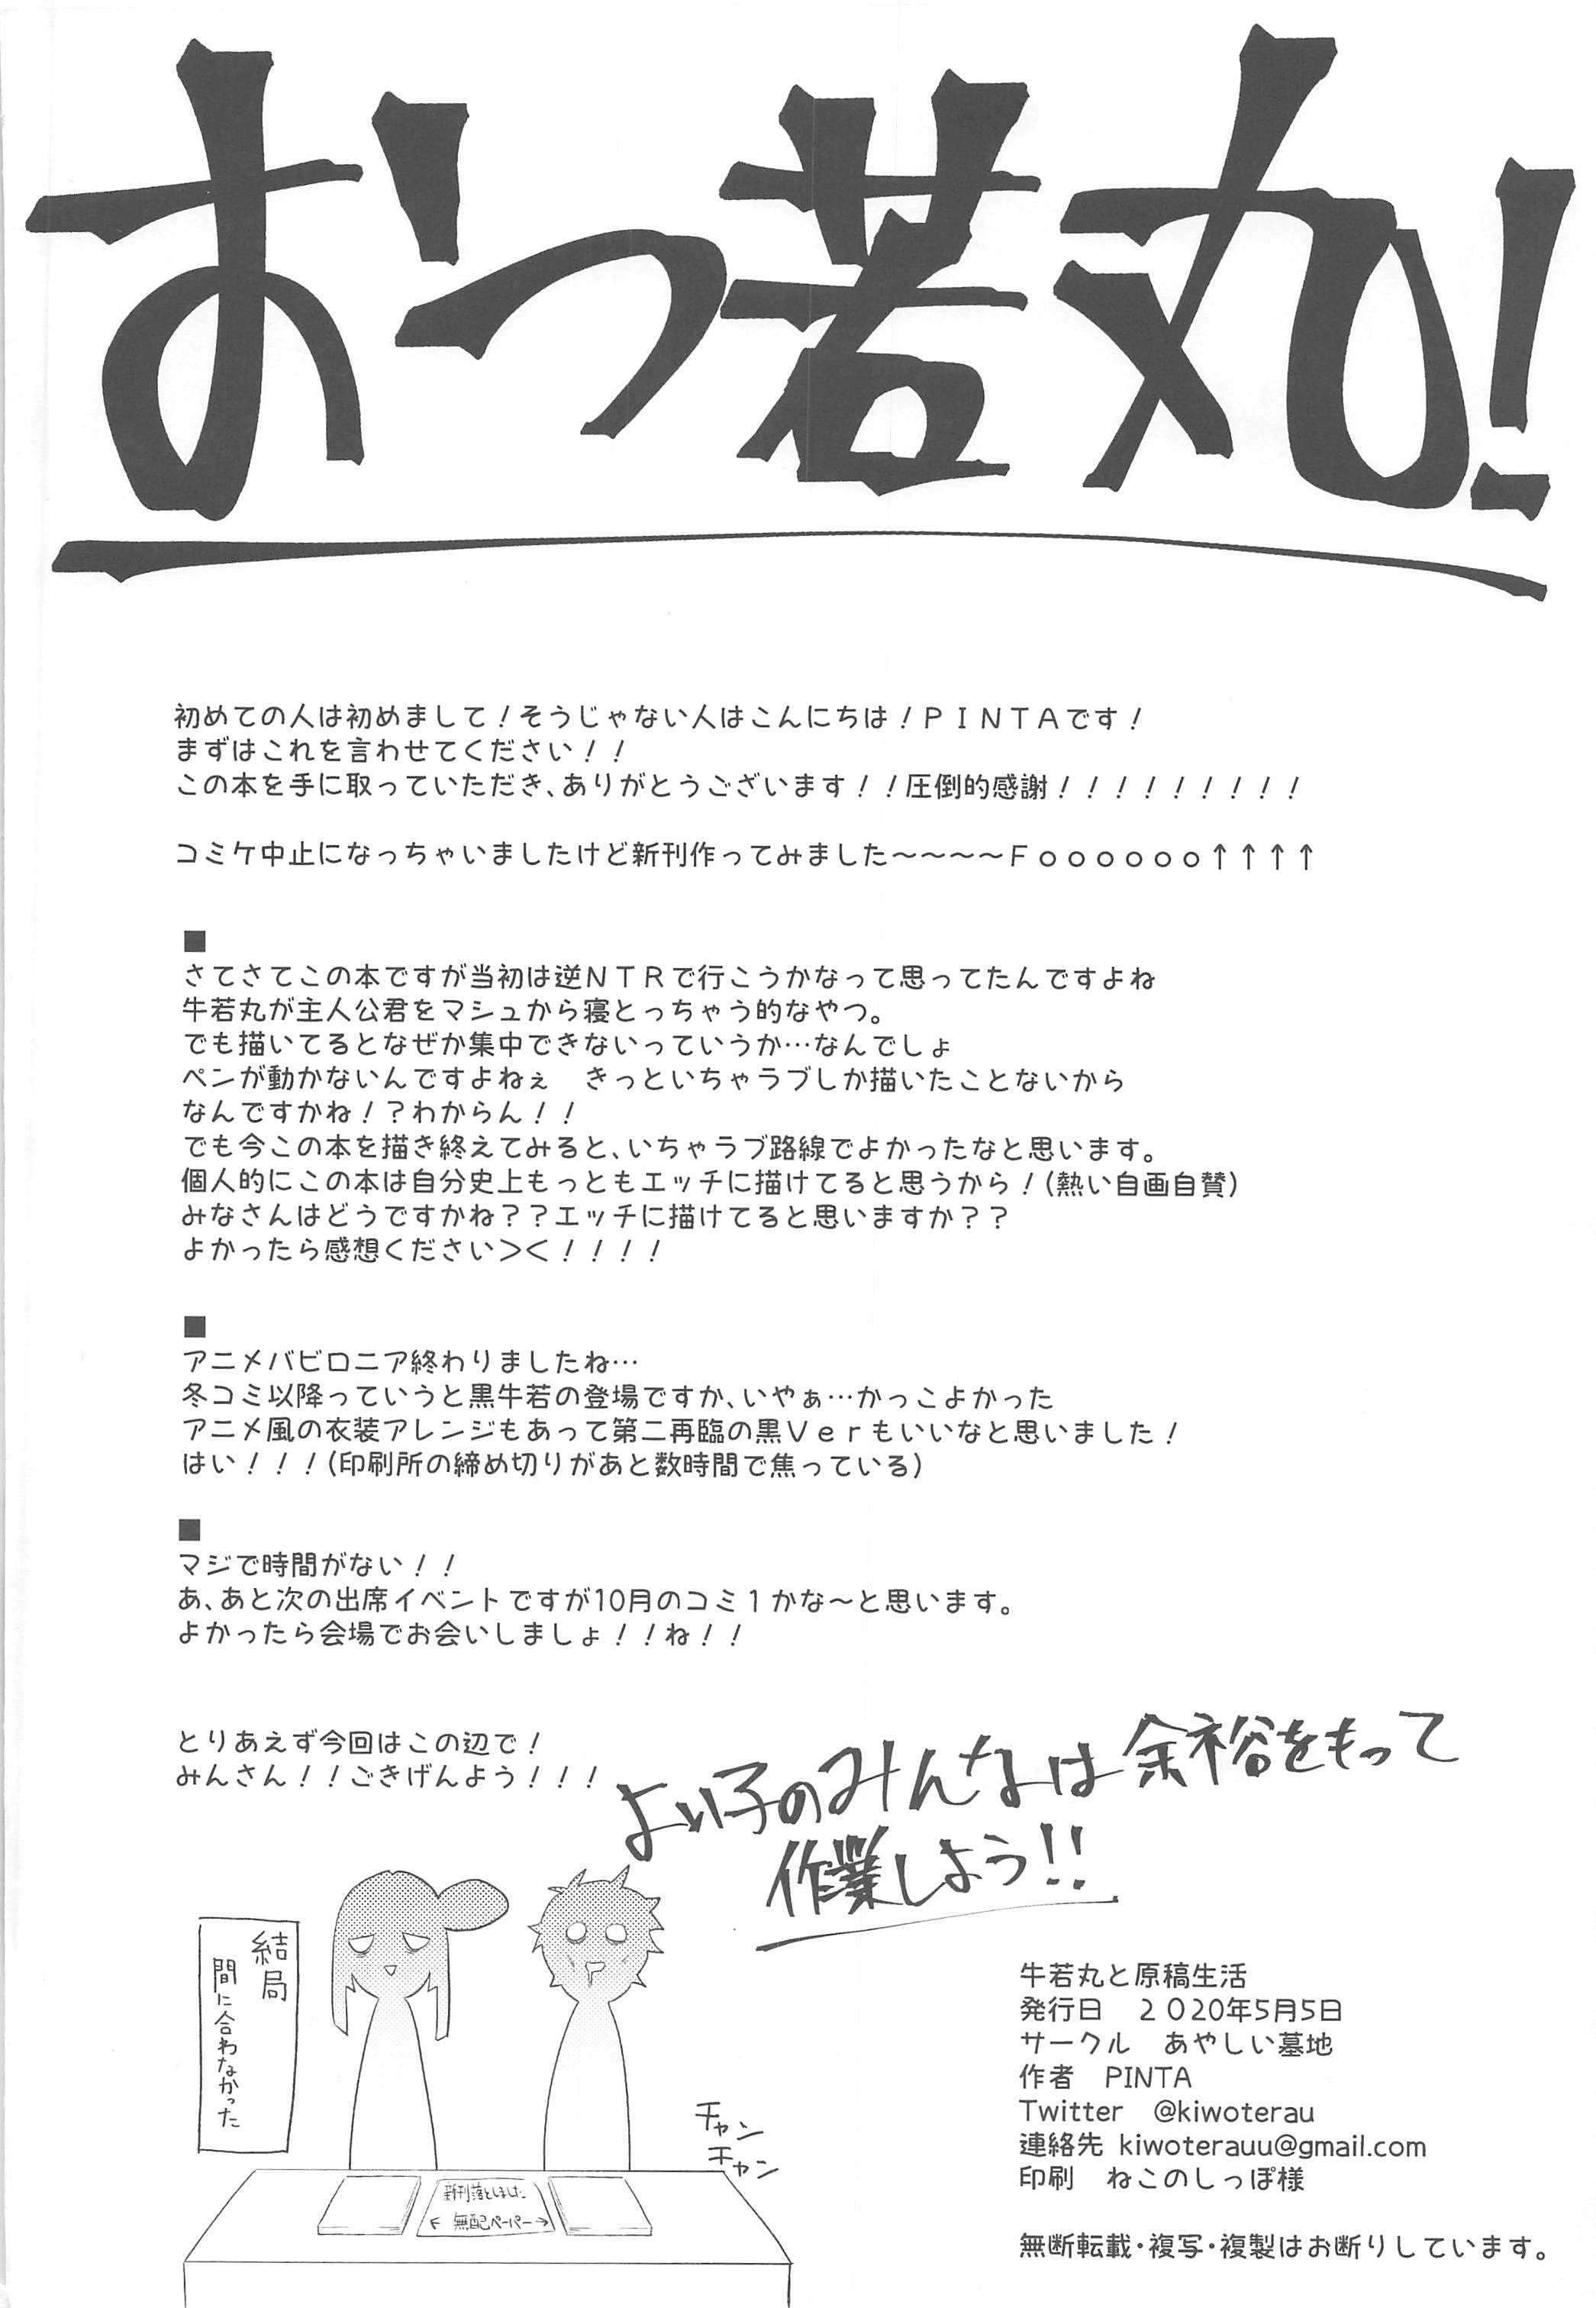 おつ若丸！
初めての人は初めまして！そうじゃない人はこんにちは！ＰＩＮＴＡです！
まずはこれを言わせてください！！
この本を手に取っていただき、ありがとうございます！！圧倒的感謝！！！！！！！！！
コミケ中止になっちゃいましたけど新刊作ってみました～～～～Ｆｏｏｏｏｏｏ↑↑↑↑
■
さてさてこの本ですが当初は逆ＮＴＲで行こうかなって思ってたんですよね
牛若丸が主人公君をマシュから寝とっちゃう的なやつ。
でも描いてるとなぜか集中できないっていうか…なんでしょ
ペンが動かないんですよねぇ　きっといちゃラブしか描いたことないから
なんですかね！？わからん！！
でも今この本を描き終えてみると、いちゃラブ路線でよかったなと思います。
個人的にこの本は自分史上もっともエッチに描けてると思うから！（熱い自画自賛）
みなさんはどうですかね？？エッチに描けてると思いますか？？
よかったら感想ください＞＜！！！！
■
アニメバビロニア終わりましたね…
冬コミ以降っていうと黒牛若の登場ですか、いやぁ…かっこよかった
アニメ風の衣装アレンジもあって第二再臨の黒Ｖｅｒもいいなと思いました！
はい！！！（印刷所の締め切りがあと数時間で焦っている）
■
マジで時間がない！！
あ、あと次の出席イベントですが10月のコミ１かな～と思います。
よかったら会場でお会いしましょ！！ね！！
とりあえず今回はこの辺で！
みんさん！！ごきげんよう！！！
よい子のみんなは余裕をもって
作業しよう!!
結局
間に合わなかった
チャン
チャン
新刊落としました
← 無配ペーパー →
牛若丸と原稿生活
発行日　２０20年5月5日
サークル　あやしい墓地
作者　PINTA
Twitter　@kiwoterau
連絡先 kiwoterauu@gmail.com
印刷　ねこのしっぽ様
無断転載・複写・複製はお断りしています。